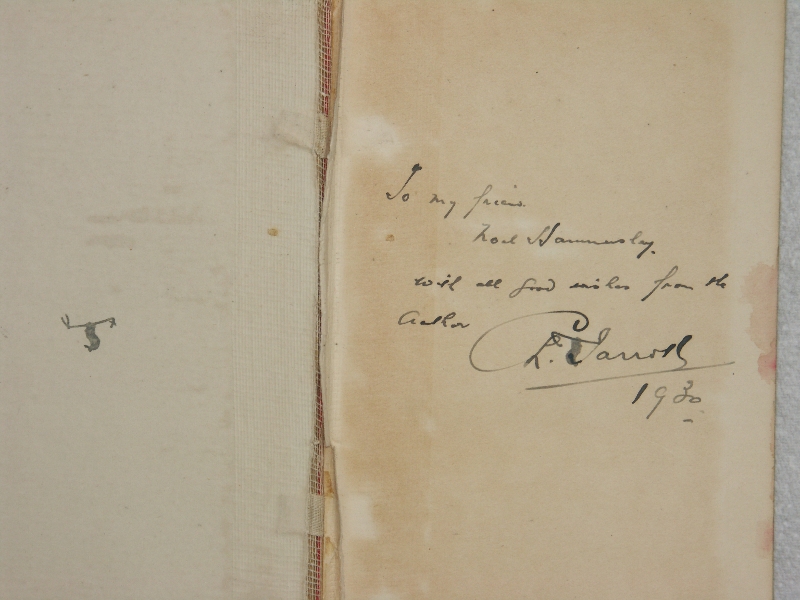 To my friend
Noel Hammersley.
with all good wishes from the
Author
C. Jarrott
1930